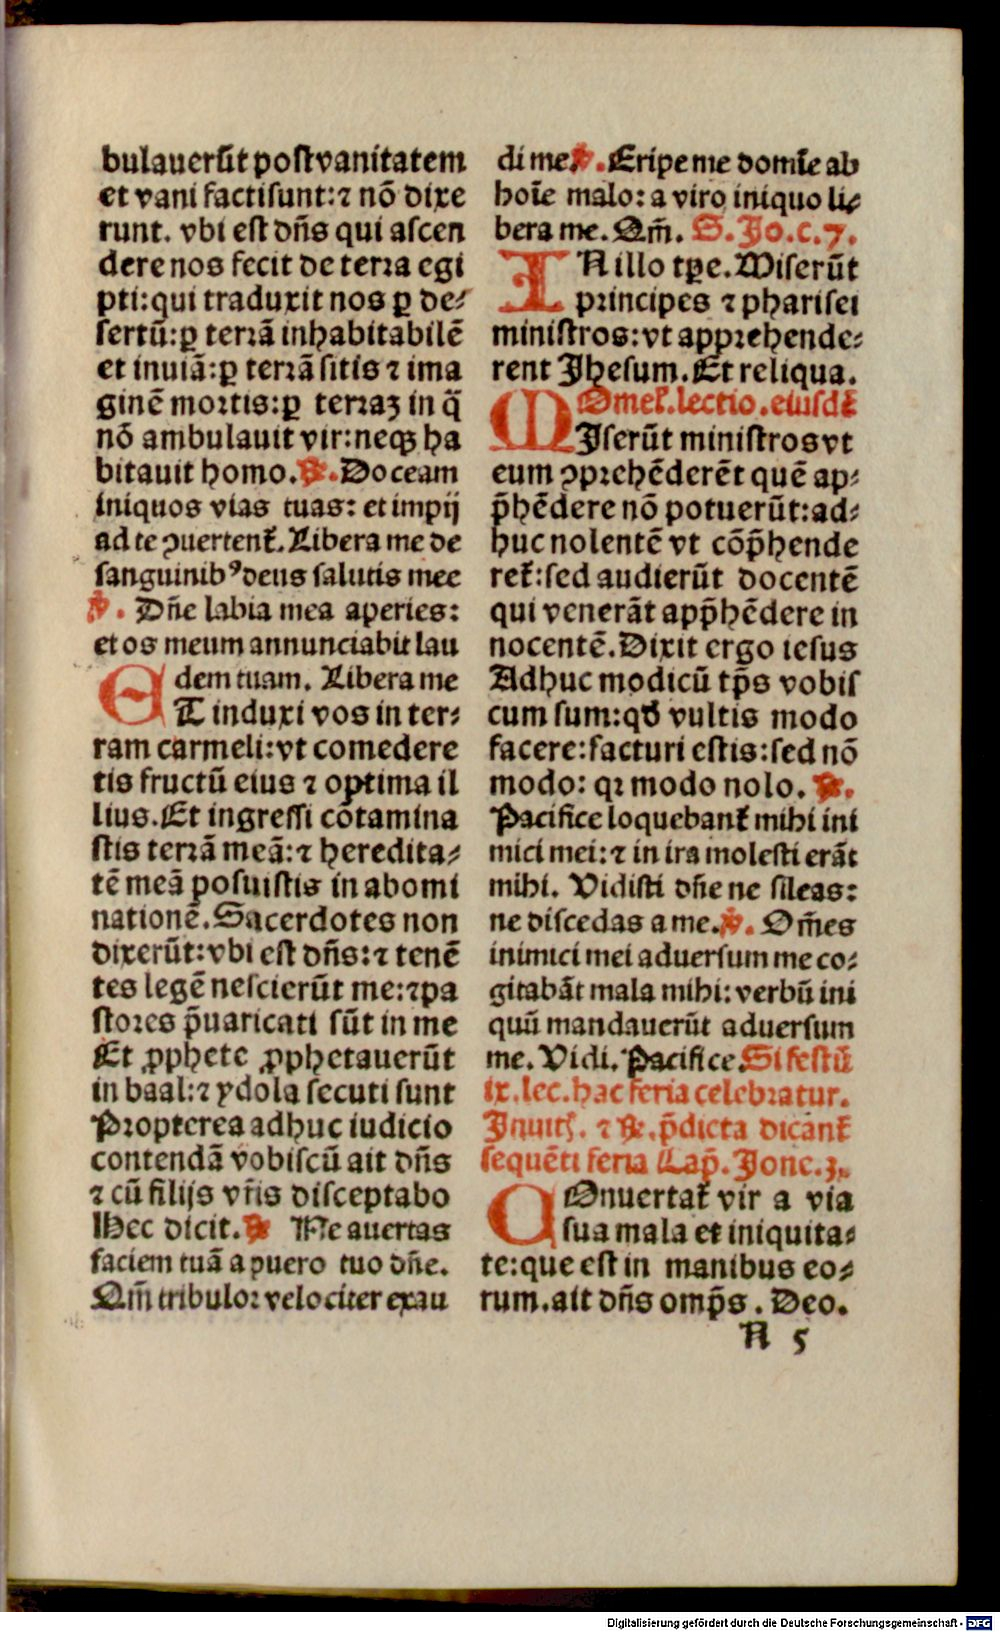 bulauerūt post vanitatem
et vani facti sunt: ⁊ nō dixe
runt. vbi est dn̄s qui ascen
dere nos fecit de terra egi
pti: qui traduxit nos ꝑ de⸗
sertū: ꝑ terrā inhabitabilē
et inuiā: ꝑ terrā sitis ⁊ ima
ginē mortis: ꝑ terraꝫ in q̄
nō ambulauit vir: neqꝫ ha
bitauit homo. ℟. Doceam
iniquos vias tuas: et impij
ad te ꝯuertent᷑. Libera me de
sanguinibꝰ deus salutis mee
℣. Dn̄e labia mea aperies:
et os meum annunciabit lau
dem tuam. Libera me
ET induxi vos in ter⸗
ram carmeli: vt comedere
tis fructū eius ⁊ optima il
lius. Et ingressi cōtamina
stis terrā meā: ⁊ heredita⸗
tē meā posuistis in abomi
nationē. Sacerdotes non
dixerūt: vbi est dn̄s: ⁊ tenē
tes legē nescierūt me: ⁊ pa
stores p̄uaricati sūt in me
Et ꝓphete ꝓphetauerūt
in baal: ⁊ ydola secuti sunt
Propterea adhuc iudicio
contendā vobiscū ait dn̄s
⁊ cū filijs vr̄is disceptabo
Hec dicit. ℟ Ne auertas
faciem tuā a puero tuo dn̄e.
Qm̄ tribulor velociter exau
di me. ℣. Eripe me domīe ab
hoīe malo: a viro iniquo li⸗
bera me. Qm̄. S. Jo. c. 7.
IN illo tꝑe. Miserūt
principes ⁊ pharisei
ministros: vt apprehende⸗
rent Jhesum. Et reliqua.
Omel᷑. lectio. eiusdē
MIserūt ministros vt
eum ꝯprehēderēt quē ap⸗
p̄hēdere nō potuerūt: ad⸗
huc nolentē vt cōp̄hende
ret᷑: sed audierūt docentē
qui venerāt app̄hēdere in
nocentē. Dixit ergo iesus
Adhuc modicū tp̄s vobis
cum sum: qd̄ vultis modo
facere: facturi estis: sed nō
modo: qꝛ modo nolo. ℟.
Pacifice loquebant᷑ mihi ini
mici mei: ⁊ in ira molesti erāt
mihi. Vidisti dn̄e ne sileas:
ne discedas a me. ℣. Om̄es
inimici mei aduersum me co⸗
gitabāt mala mihi: verbū ini
quū mandauerūt aduersum
me. Vidi. Pacifice. Si festū
ix. lec. hac feria celebratur.
Inuit. ⁊ ℟. p̄dicta dicant᷑
sequēti feria Cap̄. Jone. 3.
COnuertat᷑ vir a via
sua mala et iniquita⸗
te: que est in manibus eo⸗
rum. ait dn̄s omp̄s. Deo.
N 5
Digitalisierung gefördert durch die Deutsche Forschungsgemeinschaft - DFG